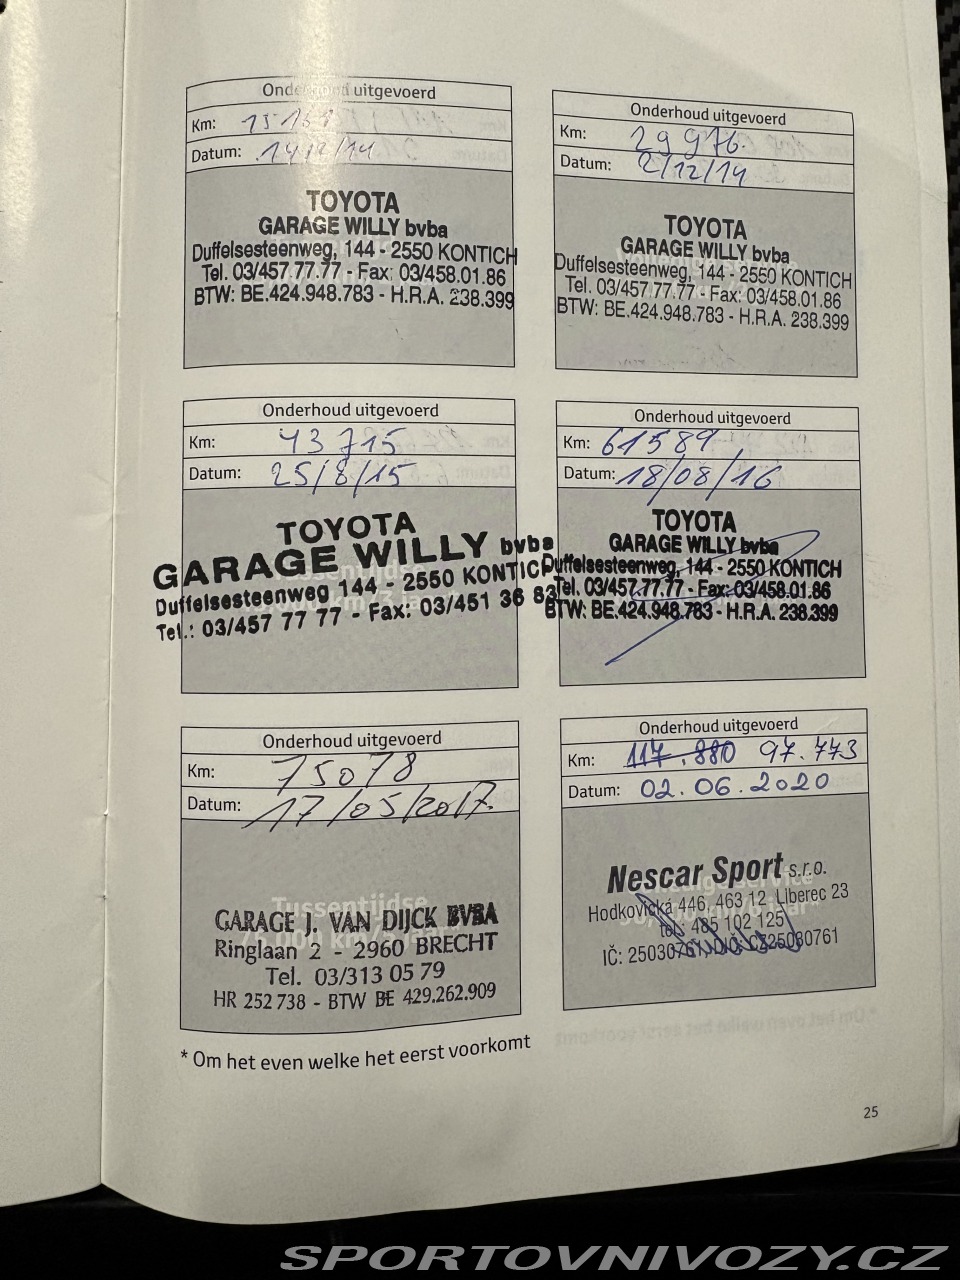 Onderhoud uitgevoerd
Km:
Datum: 14/2/14
TOYOTA
GARAGE WILLY bvba
Duffelsesteenweg, 144 - 2550 KONTICH
Tel. 03/457.77.77 - Fax: 03/458.01.86
BTW: BE.424.948.783 - H.R.A. 238.399
Onderhoud uitgevoerd
Km: 29976.
Datum: 2/12/14
TOYOTA
GARAGE WILLY bvba
Duffelsesteenweg, 144 - 2550 KONTICH
Tel. 03/457.77.77 - Fax: 03/458.01.86
BTW: BE.424.948.783 - H.R.A. 238.399
Onderhoud uitgevoerd
Km: 43715
Datum: 25/8/15
TOYOTA
GARAGE WILLY bvba
Duffelsesteenweg 144 - 2550 KONTICH
Tel.: 03/457 77 77 - Fax: 03/451 36 83
Onderhoud uitgevoerd
Km: 61589
Datum: 18/08/16
TOYOTA
GARAGE WILLY bvba
Duffelsesteenweg, 144 - 2550 KONTICH
Tel. 03/457.77.77 - Fax: 03/458.01.86
BTW: BE.424.948.783 - H.R.A. 238.399
Onderhoud uitgevoerd
Km: 75078
Datum: 17/05/2017.
Tussentijdse
GARAGE J. VAN DIJCK BVBA
Ringlaan 2 - 2960 BRECHT
Tel. 03/313 05 79
HR 252 738 - BTW BE 429.262.909
Onderhoud uitgevoerd
Km: 117.880 97.773
Datum: 02.06.2020
Nescar Sport s.r.o.
Hodkovická 446, 463 12 Liberec 23
tel.: 485 102 125
IČ: 25030761, DIČ: CZ25030761
* Om het even welke het eerst voorkomt
25
SPORTOVNIVOZY.CZ